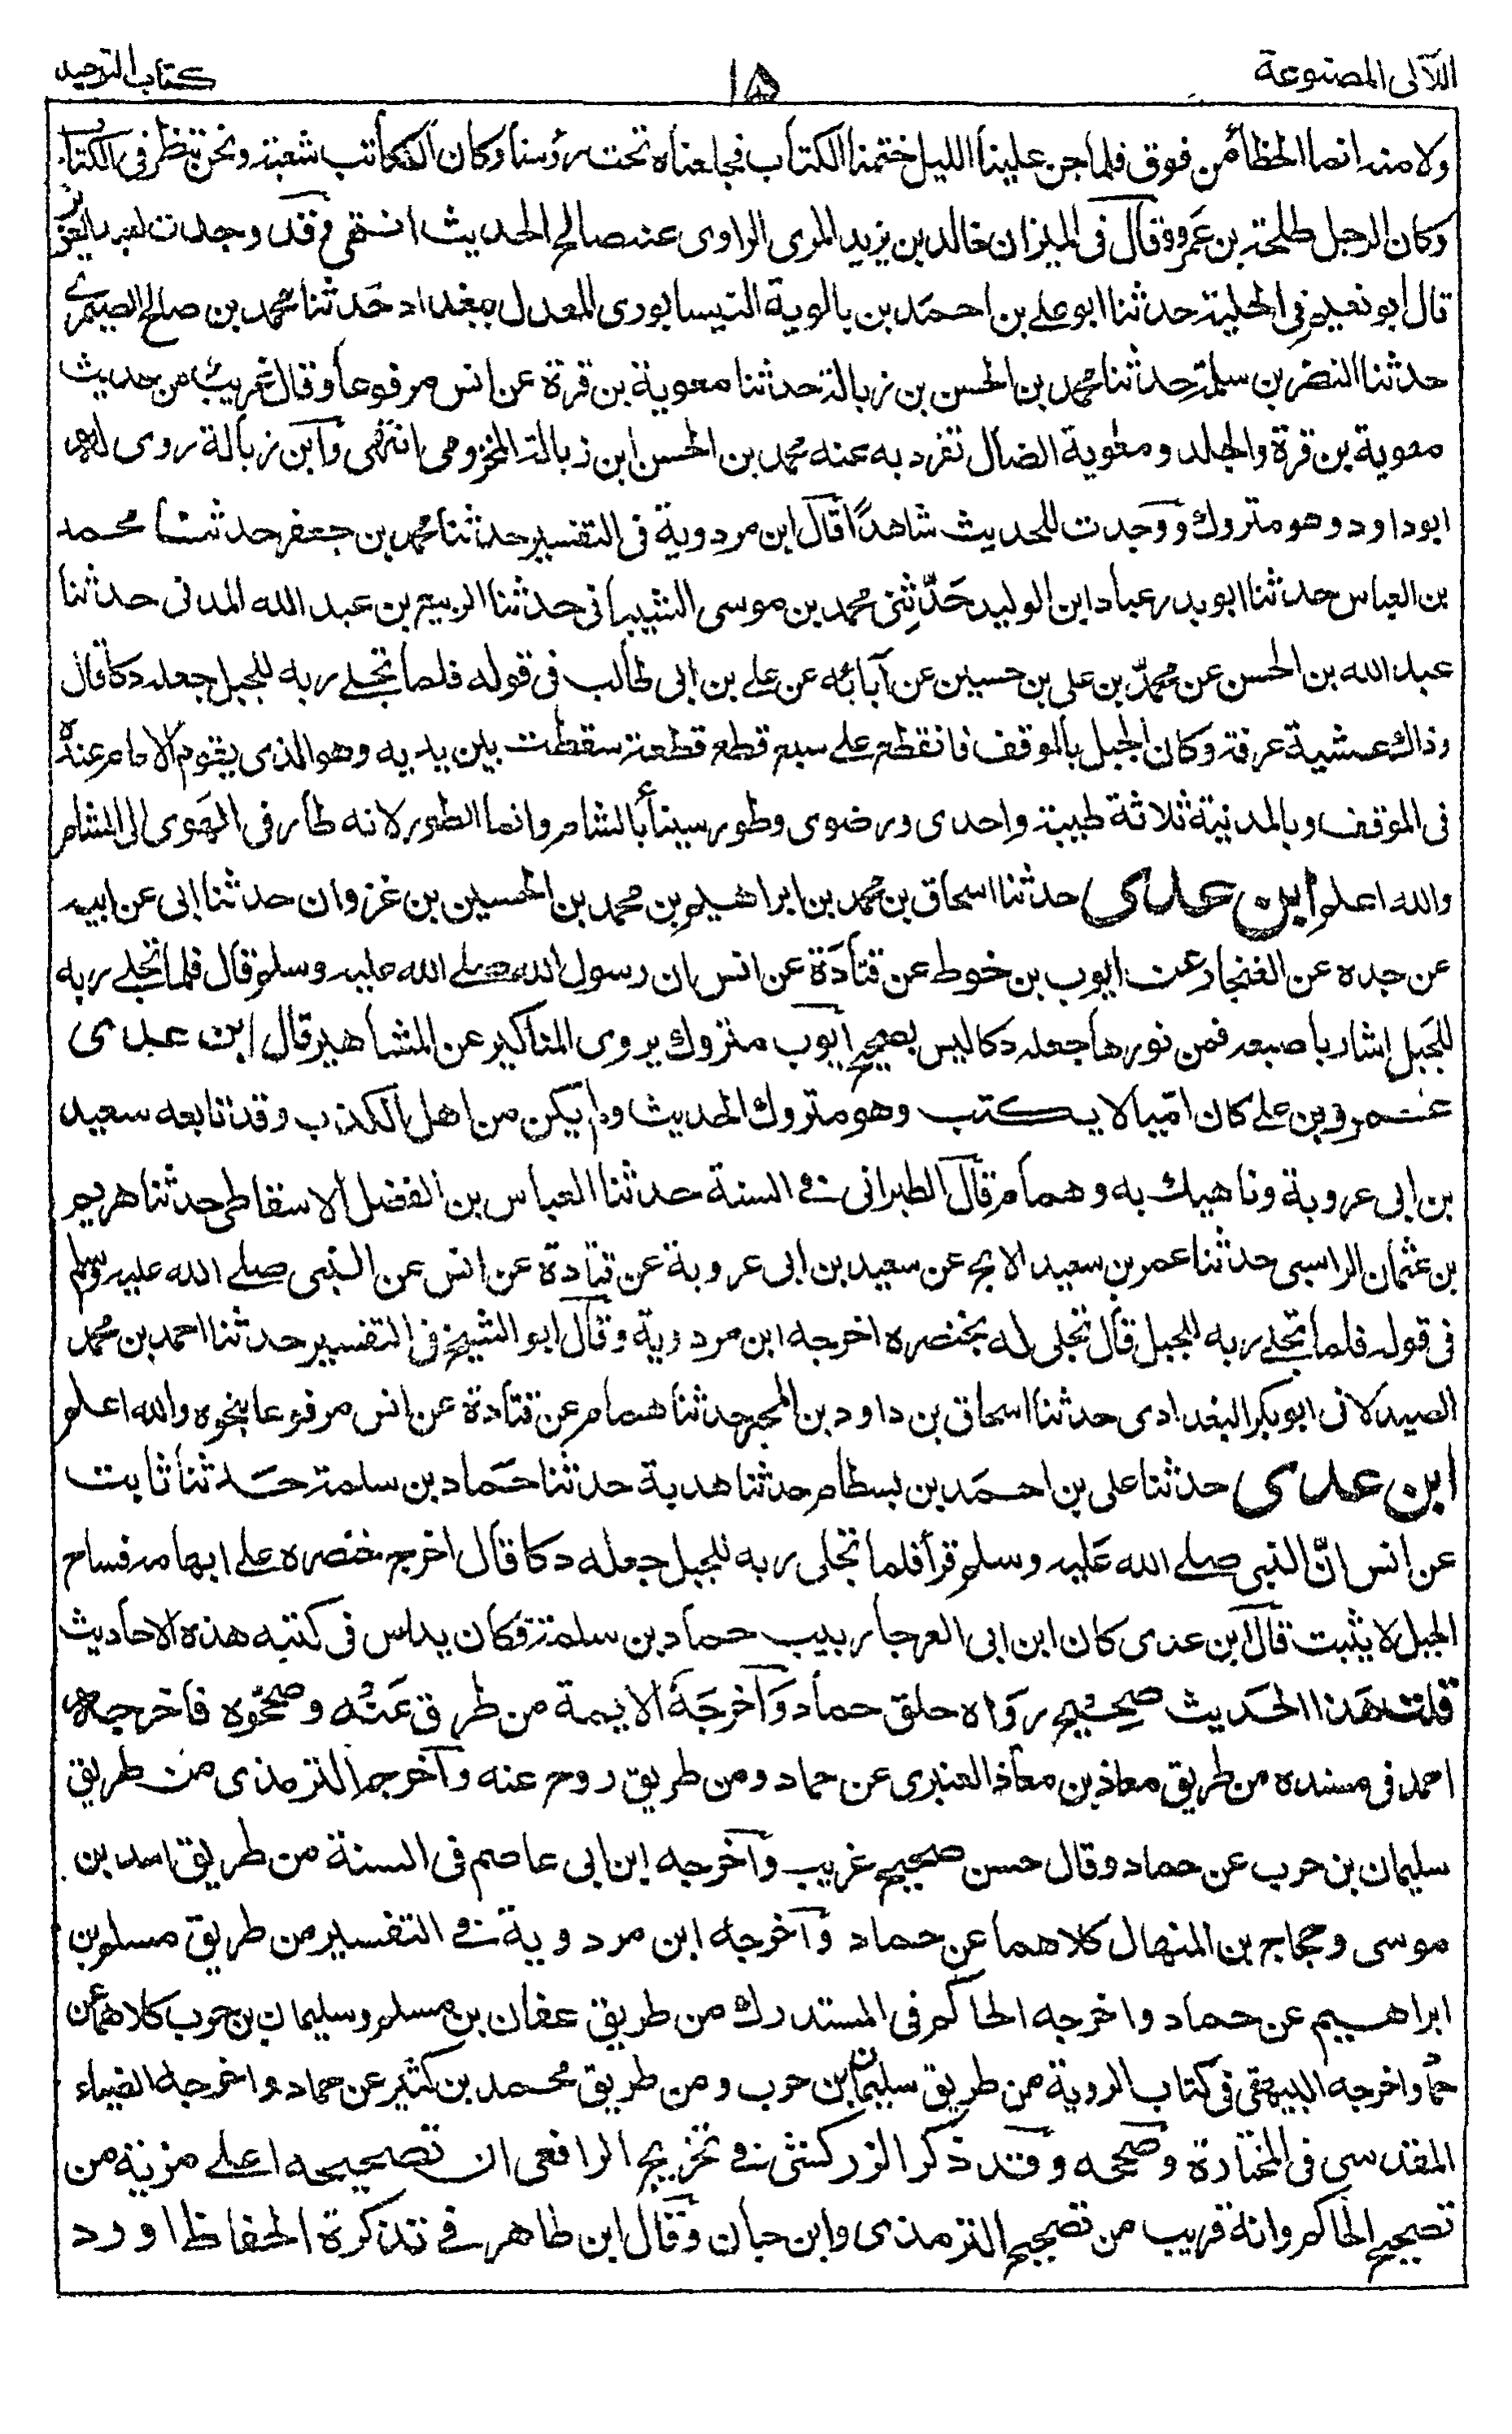 اللآلى المصنوعة
١٥
كتاب التوحيد
ولا منه انما الخطأ من فوق فلما جن علينا الليل ختمنا الكتاب فجعلناه تحت رؤسنا وكان الكاتب شعبة ونحن ننظر فى الكتاب
وكان الرجل طلحة بن عمرو وقال فى الميزان خالد بن يزيد المرى الراوى عنه صالح الحديث انتهى وقد وجدت لعبد العزيز
قال ابو نعيم فى الحلية حدثنا ابو على بن احمد بن بالوية النيسابورى المعدل ببغداد حدثنا محمد بن صالح الصيمرى
حدثنا النضر بن سلمة حدثنا محمد بن الحسن بن زبالة حدثنا معوية بن قرة عن انس مرفوعا وقال غريب من حديث
معوية بن قرة والجلد ومعوية الضال تفرد به عنه محمد بن الحسن ابن زبالة المخزومى انتهى وابن زبالة روى له
ابو داود وهو متروك ووجدت للحديث شاهدًا قال ابن مردوية فى التفسير حدثنا محمد بن جعفر حدثنا محمد
بن العباس حدثنا ابو بدر عباد ابن الوليد حَدّثنِى محمد بن موسى الشيبانى حدثنا الربيع بن عبد الله المدنى حدثنا
عبد الله بن الحسن عن محمدّ بن على بن حسين عن آبائه عن على بن ابى طالب فى قوله فلما تجلے ربه للجبل جعله دكا قال
وذاك عشية عرفة وكان الجبل بالموقف فانقطع علے سبع قطع قطعة سقطت بين يديه وهو الذى يقوم الامام عنده
فى الموقف وبالمدنية ثلاثة طيبة واحدى ورضوى وطور سيناء بالشام وانما الطور لانه طار فى الهَوى الى الشام
والله اعلم ابن عدى حدثنا اسحاق بن محمد بن ابراهيم بن محمد بن الحسين بن غزوان حدثنا ابى عن ابيه
عن جده عن الغنجار عن ايوب بن خوط عن قتادَة عن انس ان رسول الله صلے الله عليه وسلم قال فلما تجلے ربه
للجبل اشار باصبعه فمن نورها جعله دكا ليس بصحيح ايوب متروك يروى المناكير عن المشاهير قال ابن عدى
عمرو بن على كان اميا لا يكتب وهو متروك الحديث ولم يكن من اهل الكذب وقد تابعه سعيد
بن ابى عروبة وناهيك به وهمام قال الطبرانى فے السنة حدثنا العباس بن الفضل الاسقاطى حدثنا هريم
بن عثمان الراسبى حدثنا عمر بن سعيد الابح عن سعيد بن ابى عروبة عن قتادة عن انس عن النبى صلے الله عليه وسلم
فى قوله فلما تجلے ربه للجبل قال تجلى له بخنصره اخرجه ابن مردوية وقال ابو الشيخ فى التفسير حدثنا احمد بن محمد
الصيدلانى ابو بكر البغدادى حدثنا اسحاق بن داود بن المحبر حدثنا همام عن قتادة عن انس مرفوعا بنحوه والله اعلم
ابن عدى حدثنا على بن احمد بن بسطام حدثنا هدبة حدثنا حماد بن سلمة حدثنا ثابت
عن انس انّ النبى صلے الله عَليه وسلم قرأ فلما تجلى ربه للجبل جعله دكا قال اخرج خنصره علے ابهامه فساح
الجبل لا يثبت قال ابن عدى كان ابن ابى العرجا ربيب حماد بن سلمة فكان يدلس فى كتبه هذه الاحاديث
قلت هَذا الحَديث صحِيح رَواه خلق حماد وَاخرجَهُ الايمة من طرق عَنْه وصححّوه فاخرجه
احمد فى مسنده من طريق معاذ بن معاذ العنبرى عن حماد ومن طريق روح عنه واخرجه الترمذى من طريق
سليمان بن حرب عن حماد وقال حسن صحيح غريب واخرجه ابن ابى عاصم فى السنة من طريق اسد بن
موسى وحجاج بن المنهال كلاهما عن حماد واخرجه ابن مردوية فے التفسير من طريق مسلم بن
ابراهيم عن حماد واخرجه الحاكم فى المستدرك من طريق عفان بن مسلم وسليمان بن حرب كلاهما عن
حماد واخرجه البيهقى فى كتاب الروية من طريق سليمان بن حرب ومن طريق محمد بن كثير عن حماد واخرجه الضياء
المقدسى فى المختارة وصححه وقد ذكر الزركشى فے تخريج الرافعى ان تصحيحه اعلے مزية من
تصحيح الحاكم وانه قريب من تصحيح الترمذى وابن حبان وقال ابن طاهر فے تذكرة الحفاظ اورد